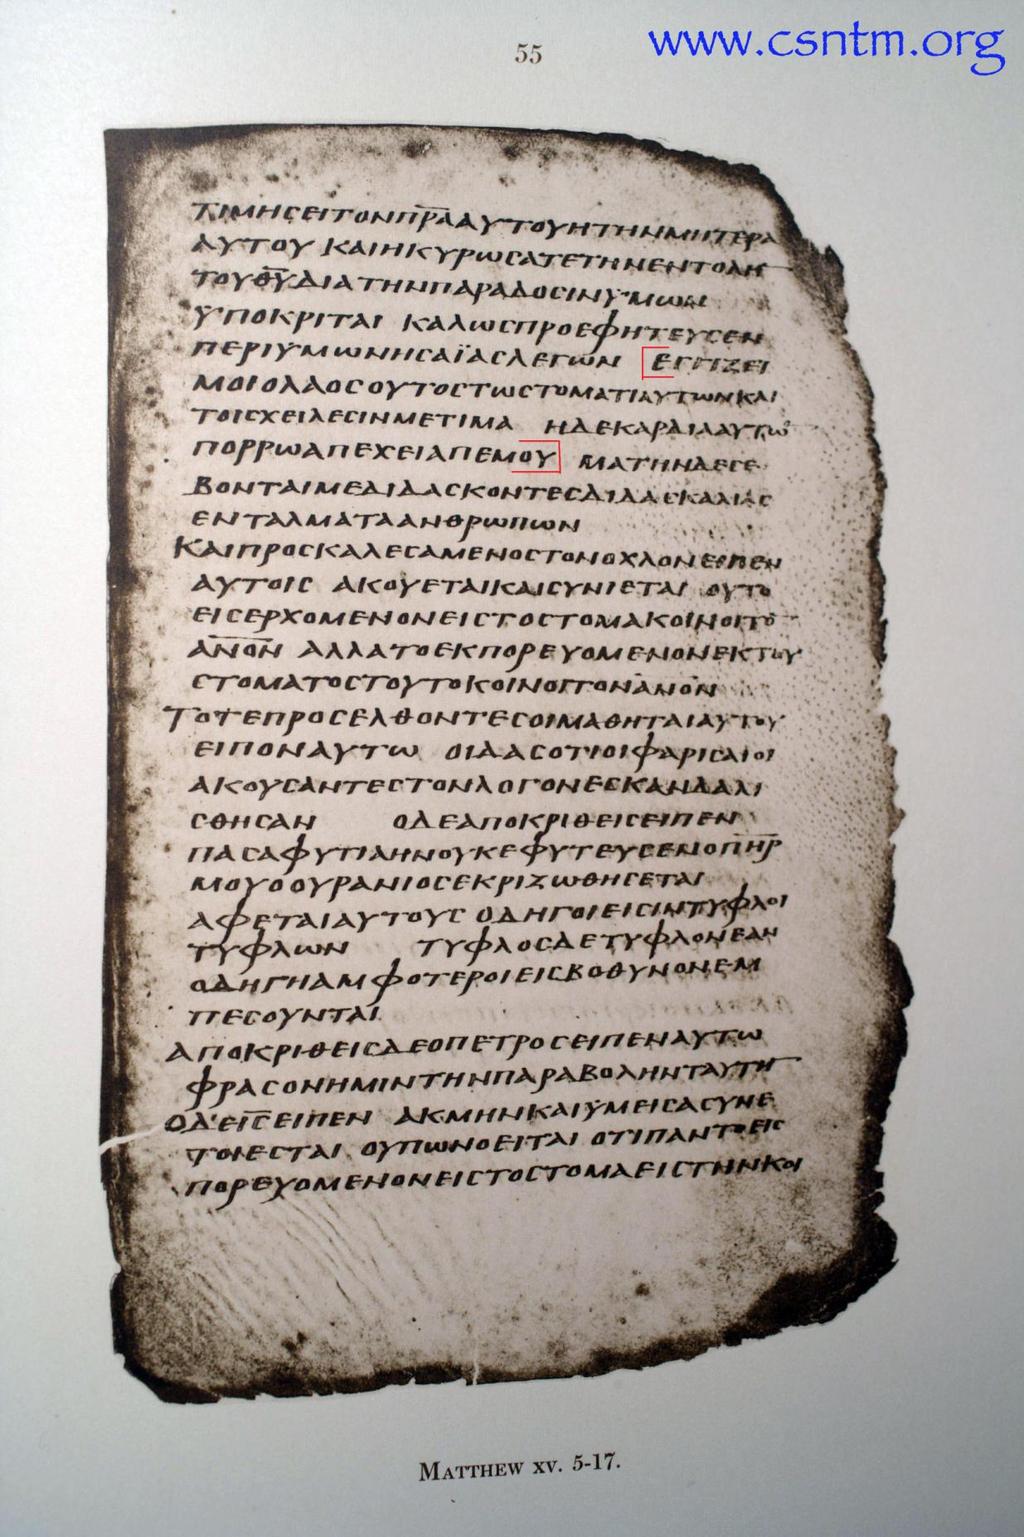 www.csntm.org
55
ΤΙΜΗCΕΙΤΟΝΠ̅Ρ̅Α̅ΑΥΤΟΥΗΤΗΝΜΗΤΕΡΑ
ΑΥΤΟΥ ΚΑΙΗΚΥΡΩCΑΤΕΤΗΝΕΝΤΟΛΗ̅
ΤΟΥΘ̅Υ̅ΔΙΑΤΗΝΠΑΡΑΔΟCΙΝΥΜΩΝ
ΥΠΟΚΡΙΤΑΙ ΚΑΛΩCΠΡΟΕΦΗΤΕΥCΕΝ
ΠΕΡΙΥΜΩΝΗCΑΪΑCΛΕΓΩΝ ΕΓΓΙΖΕΙ
ΜΟΙΟΛΑΟCΟΥΤΟCΤΩCΤΟΜΑΤΙΑΥΤΩΝΚΑΙ
ΤΟΙCΧΕΙΛΕCΙΝΜΕΤΙΜΑ ΗΔΕΚΑΡΔΙΑΑΥΤΩ̅
ΠΟΡΡΩΑΠΕΧΕΙΑΠΕΜΟΥ ΜΑΤΗΝΔΕCΕ
ΒΟΝΤΑΙΜΕΔΙΔΑCΚΟΝΤΕCΔΙΔΑCΚΑΛΙΑC
ΕΝΤΑΛΜΑΤΑΑΝΘΡΩΠΩΝ
ΚΑΙΠΡΟCΚΑΛΕCΑΜΕΝΟCΤΟΝΟΧΛΟΝΕΙΠΕΝ
ΑΥΤΟΙC ΑΚΟΥΕΤΑΙΚΑΙCΥΝΙΕΤΑΙ ΟΥΤΟ
ΕΙCΕΡΧΟΜΕΝΟΝΕΙCΤΟCΤΟΜΑΚΟΙΝΟΙΤΟ̅
Α̅Ν̅Ο̅Ν̅ ΑΛΛΑΤΟΕΚΠΟΡΕΥΟΜΕΝΟΝΕΚΤΟΥ
CΤΟΜΑΤΟCΤΟΥΤΟΚΟΙΝΟΙΤΟΝΑ̅Ν̅Ο̅Ν̅
ΤΟΤΕΠΡΟCΕΛΘΟΝΤΕCΟΙΜΑΘΗΤΑΙΑΥΤΟΥ
ΕΙΠΟΝΑΥΤΩ ΟΙΔΑCΟΤΙΟΙΦΑΡΙCΑΙΟΙ
ΑΚΟΥCΑΝΤΕCΤΟΝΛΟΓΟΝΕCΚΑΝΔΑΛΙ
CΘΗCΑΝ ΟΔΕΑΠΟΚΡΙΘΕΙCΕΙΠΕΝ
ΠΑCΑΦΥΤΙΑΗΝΟΥΚΕΦΥΤΕΥCΕΝΟΠ̅Η̅Ρ̅
ΜΟΥΟΟΥΡΑΝΙΟCΕΚΡΙΖΩΘΗCΕΤΑΙ
ΑΦΕΤΑΙΑΥΤΟΥC ΟΔΗΓΟΙΕΙCΙΝΤΥΦΛΟΙ
ΤΥΦΛΩΝ ΤΥΦΛΟCΔΕΤΥΦΛΟΝΕΑΝ
ΟΔΗΓΗΑΜΦΟΤΕΡΟΙΕΙCΒΟΘΥΝΟΝΕΜ
ΠΕCΟΥΝΤΑΙ
ΑΠΟΚΡΙΘΕΙCΔΕΟΠΕΤΡΟCΕΙΠΕΝΑΥΤΩ
ΦΡΑCΟΝΗΜΙΝΤΗΝΠΑΡΑΒΟΛΗΝΤΑΥΤΗ̅
ΟΔΕΙ̅C̅ΕΙΠΕΝ ΑΚΜΗΝΚΑΙΥΜΕΙCΑCΥΝΕ
ΤΟΙΕCΤΑΙ ΟΥΠΩΝΟΕΙΤΑΙ ΟΤΙΠΑΝΤΟΕΙC
ΠΟΡΕΧΟΜΕΝΟΝΕΙCΤΟCΤΟΜΑΕΙCΤΗΝΚΟΙ
MATTHEW XV. 5-17.